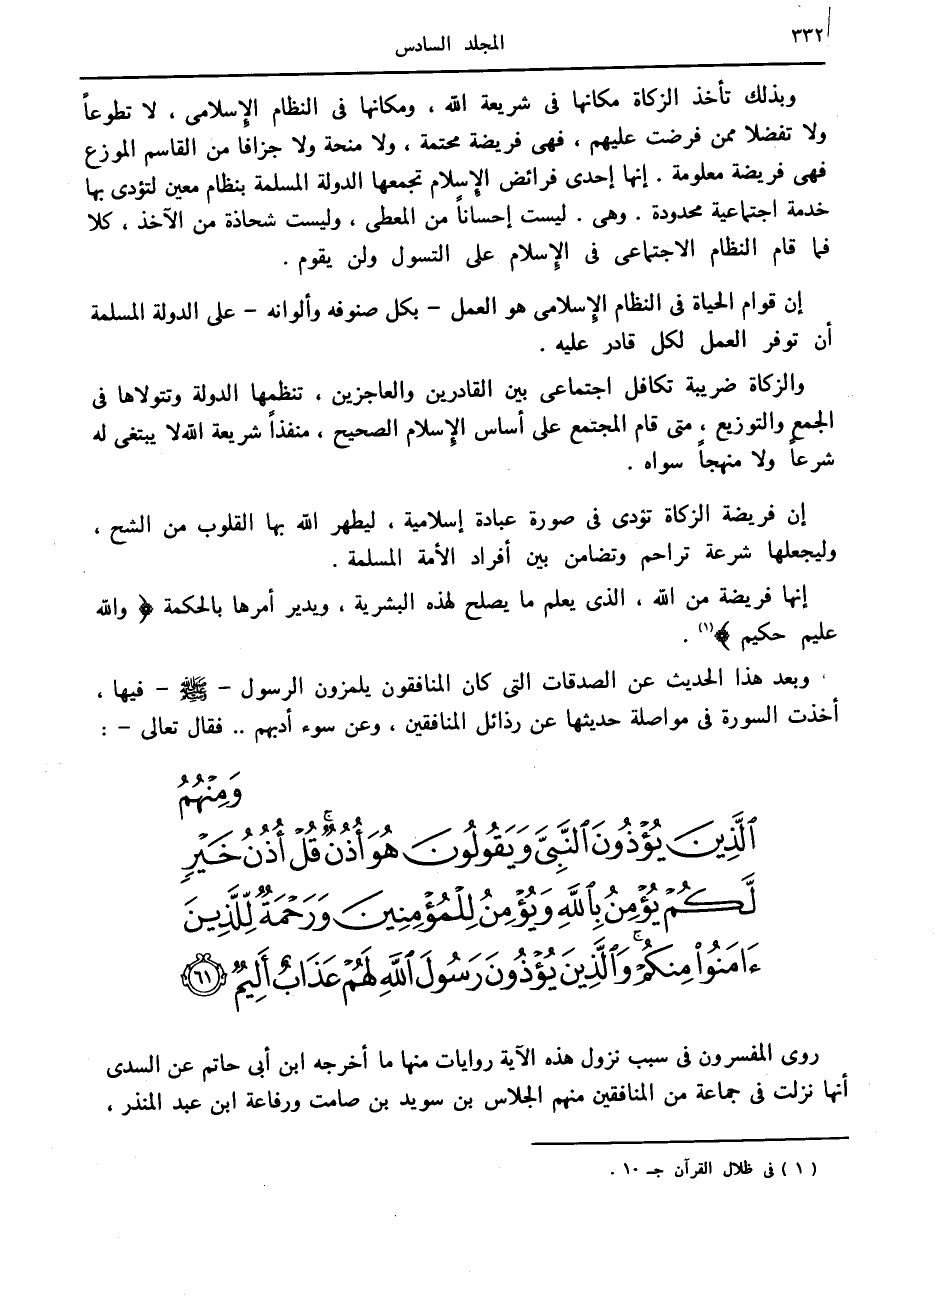 ٣٣٢
المجلد السادس
وبذلك تأخذ الزكاة مكانها فى شريعة الله ، ومكانها فى النظام الإسلامى ، لا تطوعاً
ولا تفضلا ممن فرضت عليهم ، فهى فريضة محتمة ، ولا منحة ولا جزافا من القاسم الموزع
فهى فريضة معلومة . إنها إحدى فرائض الإسلام تجمعها الدولة المسلمة بنظام معين لتؤدى بها
خدمة اجتماعية محدودة . وهى . ليست إحساناً من المعطى ، وليست شحاذة من الآخذ ، كلا
فما قام النظام الاجتماعى فى الإسلام على التسول ولن يقوم .
إن قوام الحياة فى النظام الإسلامى هو العمل – بكل صنوفه وألوانه – على الدولة المسلمة
أن توفر العمل لكل قادر عليه .
والزكاة ضريبة تكافل اجتماعى بين القادرين والعاجزين ، تنظمها الدولة وتتولاها فى
الجمع والتوزيع ، متى قام المجتمع على أساس الإسلام الصحيح ، منفذاً شريعة الله لا يبتغى له
شرعاً ولا منهجاً سواه .
إن فريضة الزكاة تؤدى فى صورة عبادة إسلامية ، ليطهر الله بها القلوب من الشح ،
وليجعلها شرعة تراحم وتضامن بين أفراد الأمة المسلمة .
إنها فريضة من الله ، الذى يعلم ما يصلح لهذه البشرية ، ويدير أمرها بالحكمة ﴿ والله
عليم حكيم ﴾(١) .
وبعد هذا الحديث عن الصدقات التى كان المنافقون يلمزون الرسول – ﷺ – فيها ،
أخذت السورة فى مواصلة حديثها عن رذائل المنافقين ، وعن سوء أدبهم .. فقال تعالى – :
وَمِنْهُمُ
ٱلَّذِينَ يُؤْذُونَ ٱلنَّبِيَّ وَيَقُولُونَ هُوَ أُذُنٌ ۚ قُلْ أُذُنُ خَيْرٍ
لَّكُمْ يُؤْمِنُ بِٱللَّهِ وَيُؤْمِنُ لِلْمُؤْمِنِينَ وَرَحْمَةٌ لِّلَّذِينَ
ءَامَنُوا۟ مِنكُمْ ۚ وَٱلَّذِينَ يُؤْذُونَ رَسُولَ ٱللَّهِ لَهُمْ عَذَابٌ أَلِيمٌ ٦١
روى المفسرون فى سبب نزول هذه الآية روايات منها ما أخرجه ابن أبى حاتم عن السدى
أنها نزلت فى جماعة من المنافقين منهم الجلاس بن سويد بن صامت ورفاعة ابن عبد المنذر ،
( ١ ) فى ظلال القرآن جـ ١٠ .